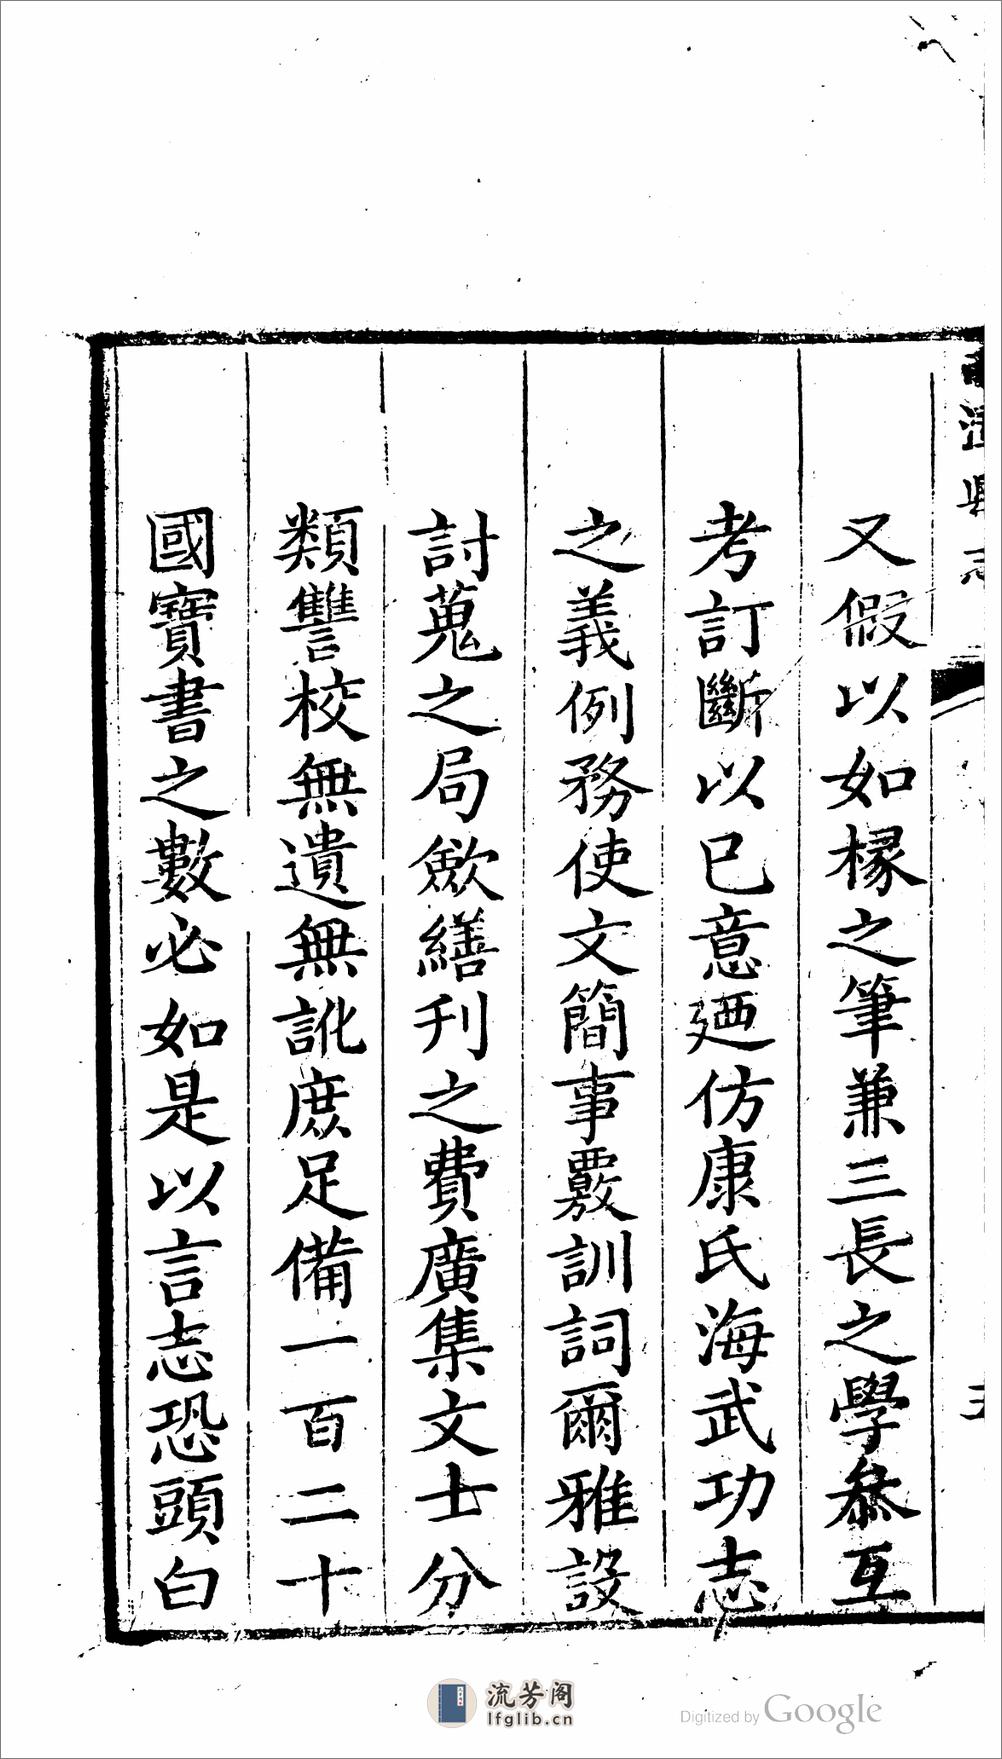 又假以如椽之筆兼三長之學叅互
考訂斷以已意廼仿康氏海武功志
之義例務使文簡事覈訓詞爾雅設
討蒐之局歛繕刋之費廣集文士分
類讐校無遺無訛庶足備一百二十
國寶書之數必如是以言志恐頭白
縣志
流芳阁
lfglib.cn
Digitized by Google